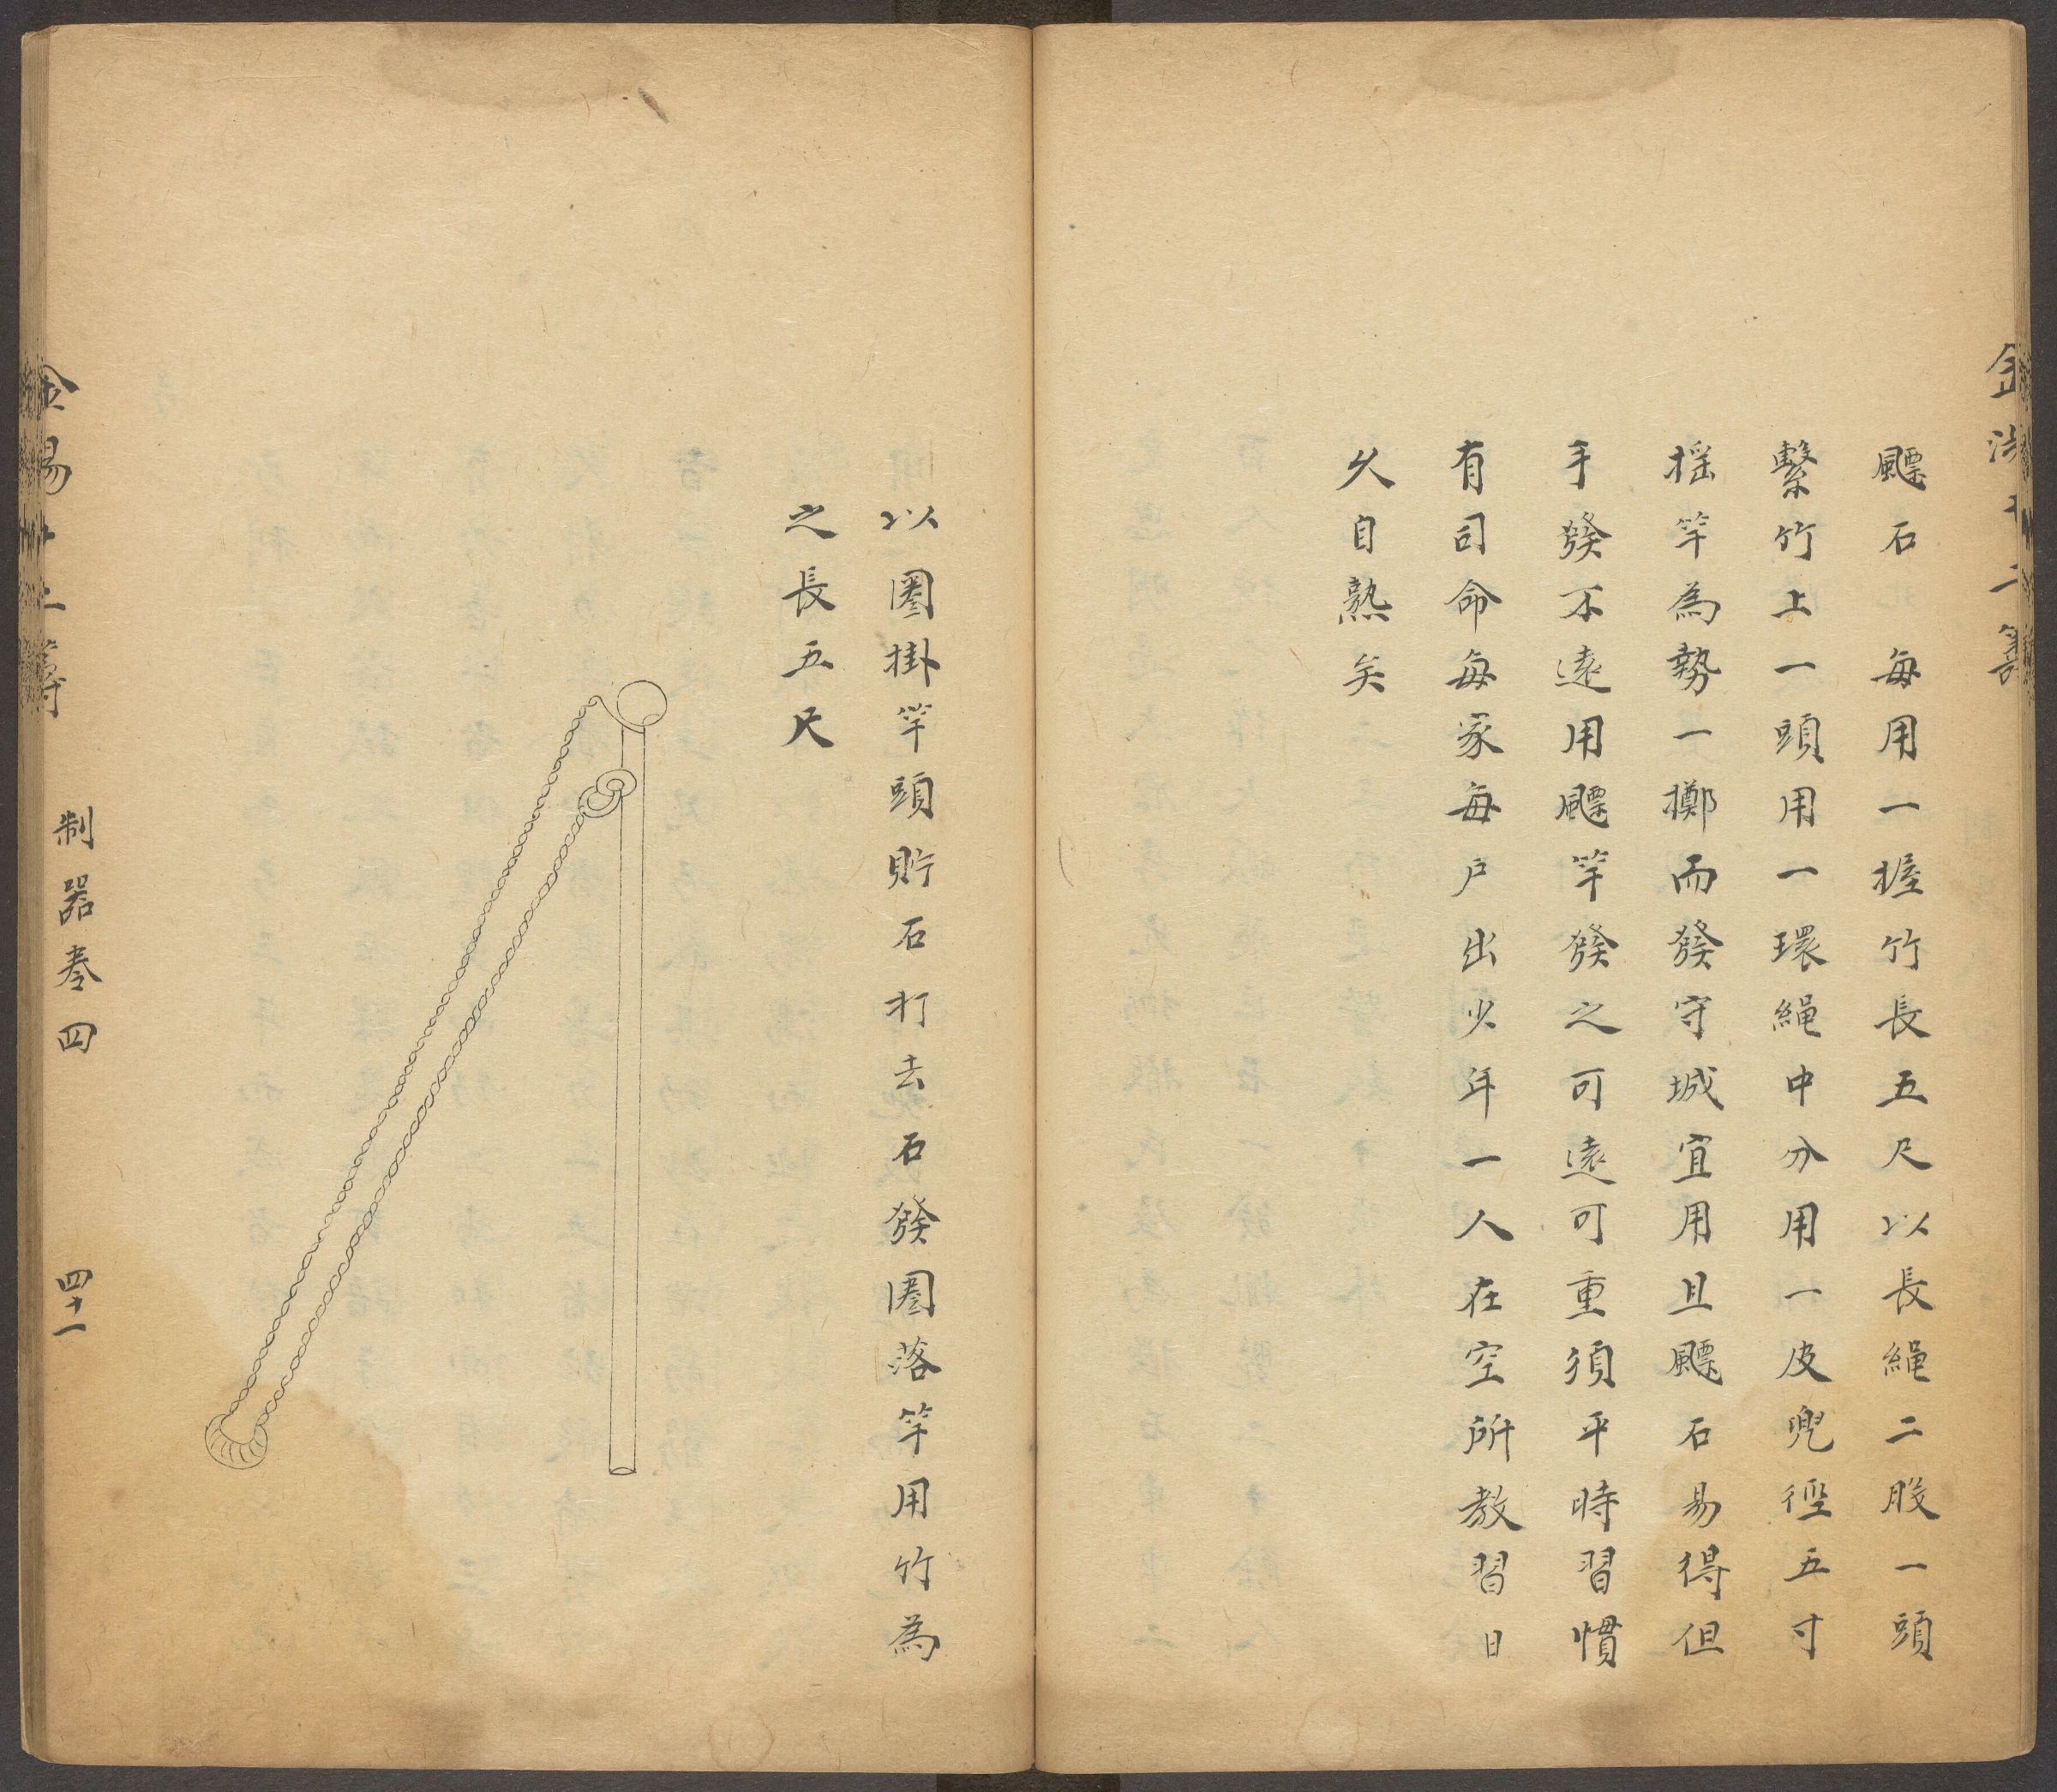 飃石　每用一握竹長五尺以長繩二股一頭
繫竹上一頭用一環繩中分用一皮兜徑五寸
揺竿為勢一擲而發守城宜用且飃石易得但
手發不遠用飃竿發之可遠可重須平時習慣
有司命每家每户出少年一人在空所教習日
久自熟矣
以圏掛竿頭貯石打去石發圏落竿用竹為
之長五尺
金湯十二籌
制器巻四
四十一